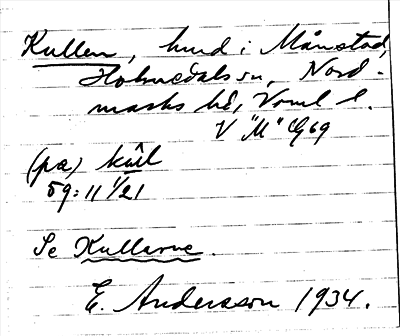 Kullen, hund i Månstad,
Holmedals sn, Nord-
marks hd, Vrml l.
V "M" G 69
(pæ) kul
59: 11 1/21
Se Kullarne.
E. Andersson 1934.